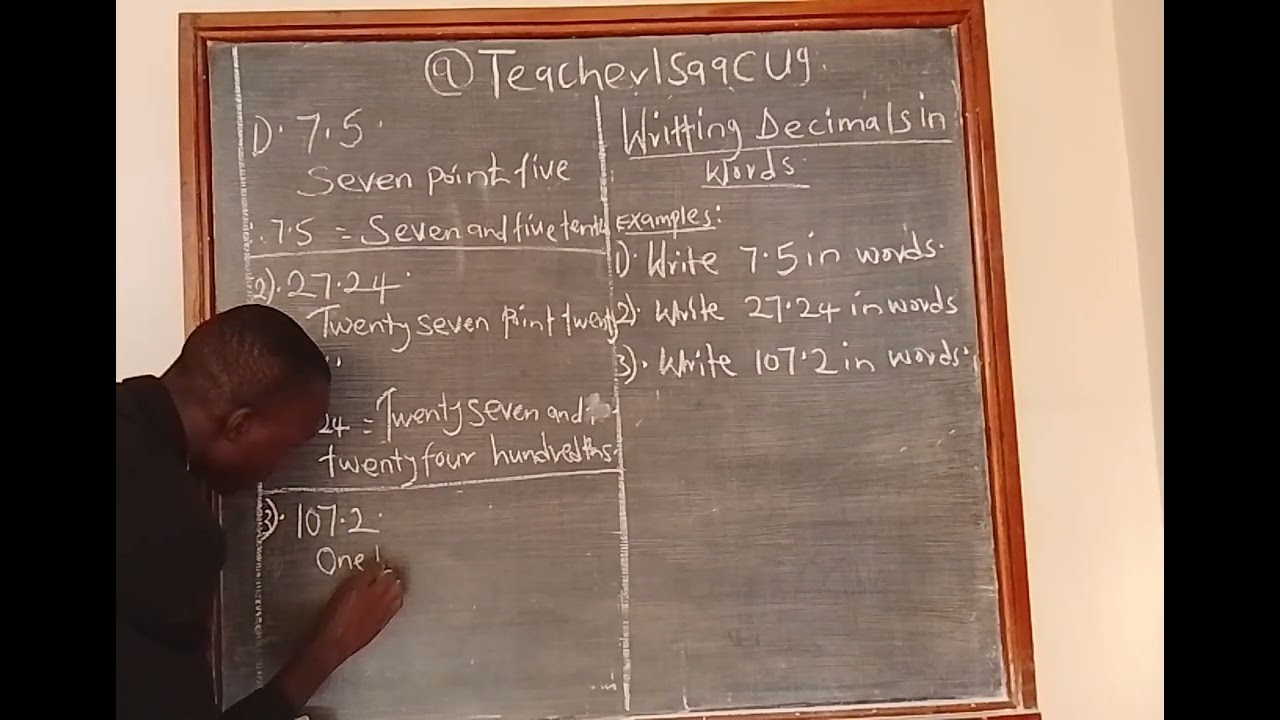 @TeacherIsaacUg.
1). 7.5.
Seven point five
∴ 7.5 = Seven and five tenths
2). 27.24.
Twenty seven point twenty
24 = Twenty seven and
twenty four hundredths.
3). 107.2.
One
Writting Decimals in
Words.
Examples:
1). Write 7.5 in words.
2). Write 27.24 in words
3). Write 107.2 in words.